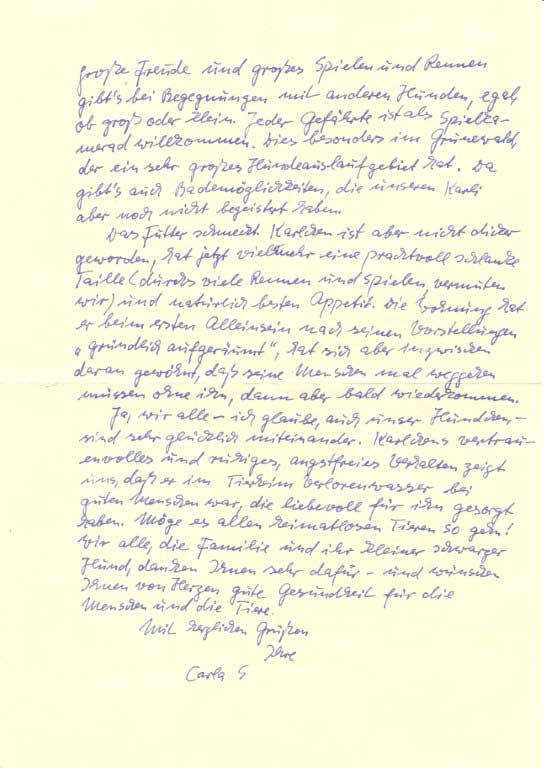 große Freude und großes Spielen und Rennen
gibt's bei Begegnungen mit anderen Hunden, egal,
ob groß oder klein. Jeder Gefährte ist als Spielka-
merad willkommen. Dies besonders im Grunewald,
der ein sehr großes Hundeauslaufgebiet hat. Da
gibt's auch Bademöglichkeiten, die unseren Karli
aber noch nicht begeistert haben.
Das Futter schmeckt. Karlchen ist aber nicht dicker
geworden, hat jetzt vielmehr eine prachtvoll schlanke
Taille (durchs viele Rennen und Spielen, vermuten
wir) und natürlich besten Appetit. Die Wohnung hat
er beim ersten Alleinsein nach seinen Vorstellungen
„gründlich aufgeräumt“, hat sich aber inzwischen
daran gewöhnt, daß seine Menschen mal weggehen
müssen ohne ihn, dann aber bald wiederkommen.
Ja, wir alle – ich glaube, auch unser Hündchen, –
sind sehr glücklich miteinander. Karlchens vertrau-
envolles und ruhiges, angstfreies Verhalten zeigt
uns, daß er im Tierheim Verlorenwasser bei
guten Menschen war, die liebevoll für ihn gesorgt
haben. Möge es allen heimatlosen Tieren so gehn!
Wir alle, die Familie und ihr kleiner schwarzer
Hund, danken Ihnen sehr dafür – und wünschen
Ihnen von Herzen gute Gesundheit für die
Menschen und die Tiere.
Mit herzlichen Grüßen
Ihre
Carla S